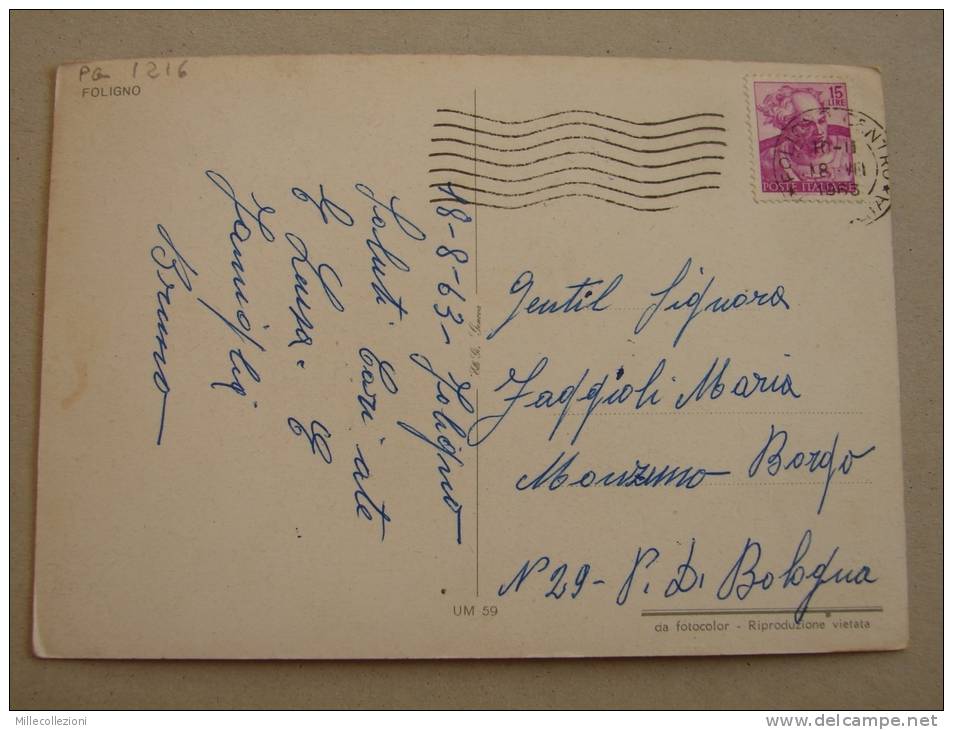 PG 1216
FOLIGNO
18-8-63 - Foligno
Saluti Cari a te
E Luisa. E
Famiglia
Bruno
Ed. G. Genova
15
LIRE
POSTE ITALIANE
FOLIGNO CENTRO
10-11
18 VIII
1963
Gentil Signora
Faggioli Maria
Monzuno Borgo
N 29 - P. Di Bologna
UM 59
da fotocolor - Riproduzione vietata
Millecollezioni
delcampe.net